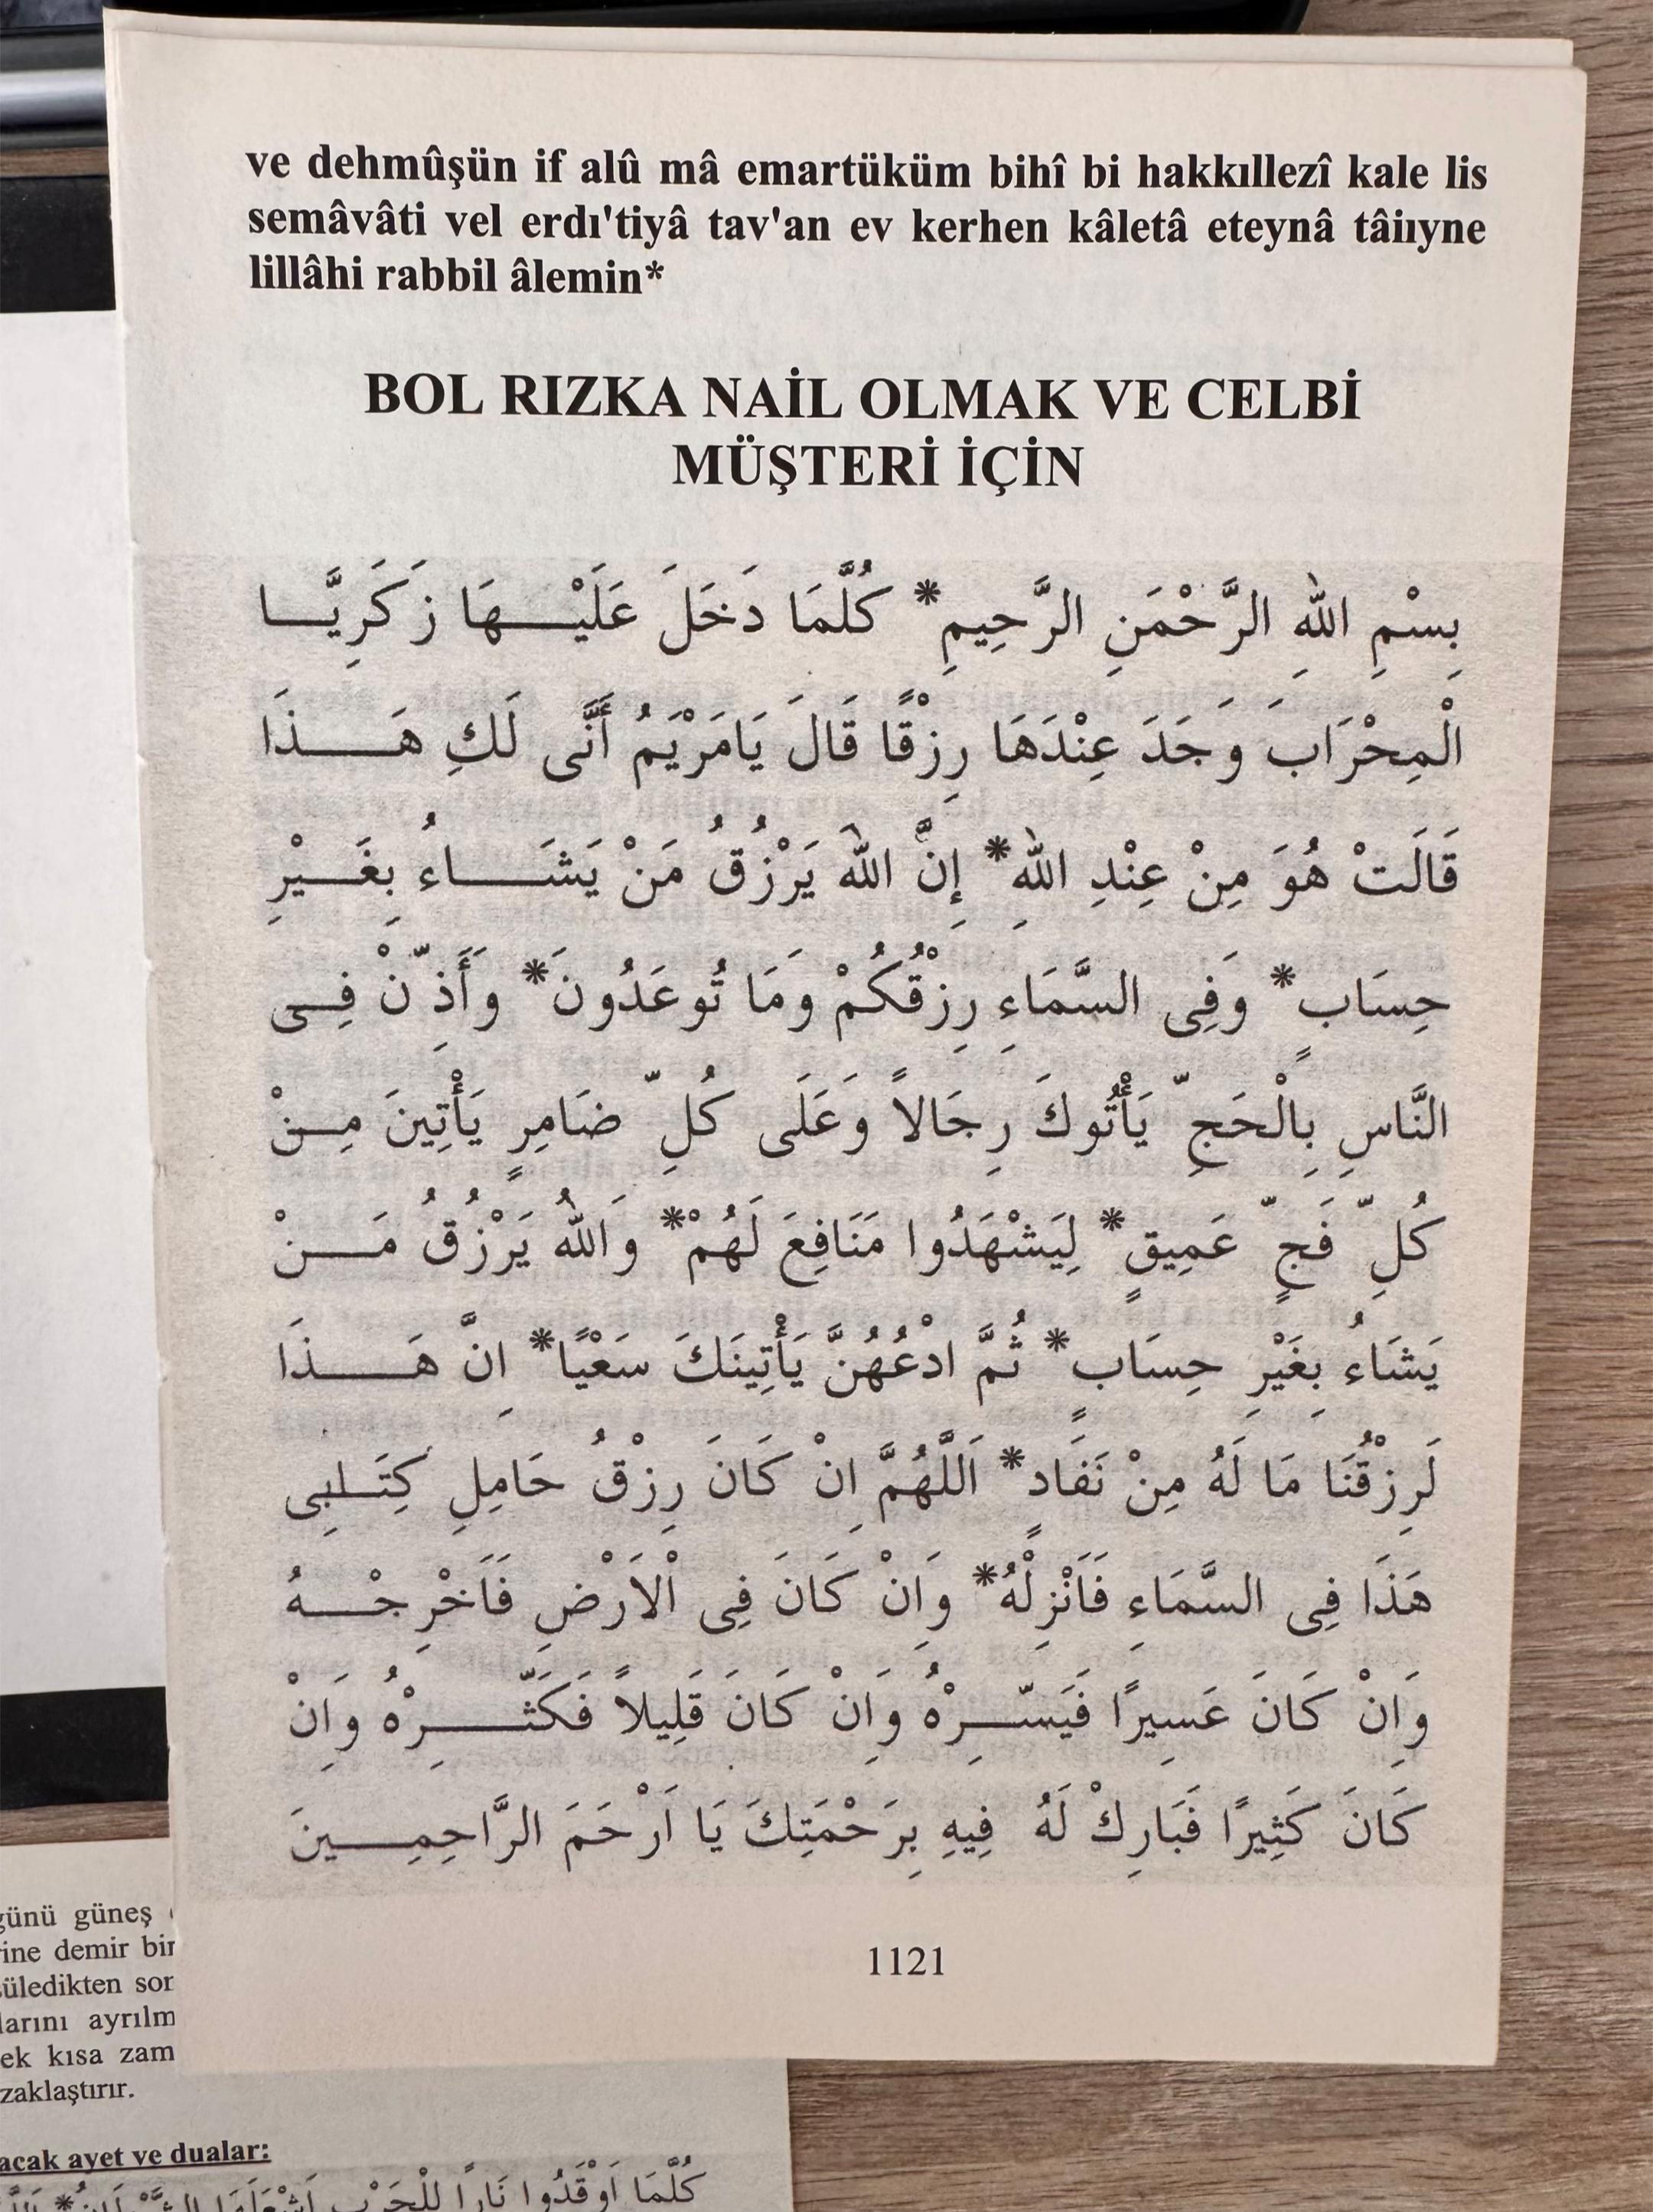 ve dehmûşün if alû mâ emartüküm bihî bi hakkıllezî kale lis
semâvâti vel erdı'tiyâ tav'an ev kerhen kâletâ eteynâ tâiıyne
lillâhi rabbil âlemin*
BOL RIZKA NAİL OLMAK VE CELBİ
MÜŞTERİ İÇİN
بِسْمِ اللهِ الرَّحْمَنِ الرَّحِيمِ* كُلَّمَا دَخَلَ عَلَيْهَا زَكَرِيَّا
الْمِحْرَابَ وَجَدَ عِنْدَهَا رِزْقًا قَالَ يَامَرْيَمُ أَنَّى لَكِ هَذَا
قَالَتْ هُوَ مِنْ عِنْدِ اللهِ* إِنَّ اللهَ يَرْزُقُ مَنْ يَشَاءُ بِغَيْرِ
حِسَابٍ* وَفِى السَّمَاءِ رِزْقُكُمْ وَمَا تُوعَدُونَ* وَأَذِّنْ فِى
النَّاسِ بِالْحَجِّ يَأْتُوكَ رِجَالاً وَعَلَى كُلِّ ضَامِرٍ يَأْتِينَ مِنْ
كُلِّ فَجٍّ عَمِيقٍ* لِيَشْهَدُوا مَنَافِعَ لَهُمْ* وَاللهُ يَرْزُقُ مَنْ
يَشَاءُ بِغَيْرِ حِسَابٍ* ثُمَّ ادْعُهُنَّ يَأْتِينَكَ سَعْيًا* اِنَّ هَذَا
لَرِزْقُنَا مَا لَهُ مِنْ نَفَادٍ* اَللَّهُمَّ اِنْ كَانَ رِزْقُ حَامِلِ كِتَابِى
هَذَا فِى السَّمَاءِ فَاَنْزِلْهُ* وَاِنْ كَانَ فِى الْاَرْضِ فَاَخْرِجْهُ
وَاِنْ كَانَ عَسِيرًا فَيَسِّرْهُ وَاِنْ كَانَ قَلِيلاً فَكَثِّرْهُ وَاِنْ
كَانَ كَثِيرًا فَبَارِكْ لَهُ فِيهِ بِرَحْمَتِكَ يَا اَرْحَمَ الرَّاحِمِينَ
1121
günü güneş
rine demir bir
süledikten sor
larını ayrılm
ek kısa zam
zaklaştırır.
acak ayet ve dualar:
كُلَّمَا اَوْقَدُوا نَارًا لِلْحَرْبِ